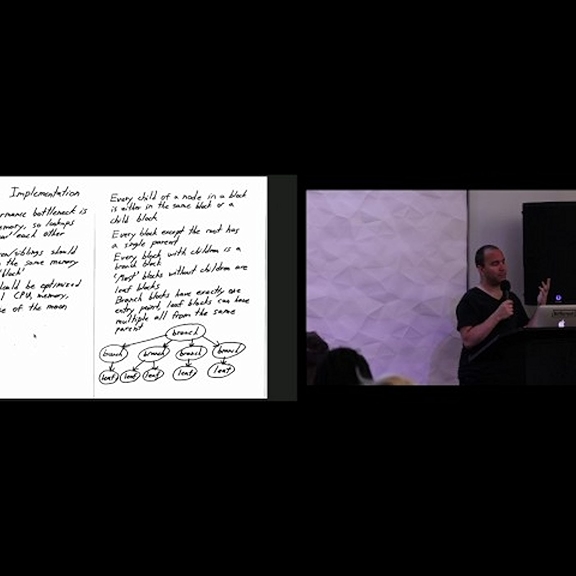 Implementation
rmance bottleneck is
emory, so lookups
each other
siblings should
the same memory
block'
ould be optimized
l CPU, memory,
se of the moon
Every child of a node in a block
is either in the same block or a
child block
Every block except the root has
a single parent
Every block with children is a
branch block
'Most' blocks without children are
leaf blocks
Branch blocks have exactly one
entry point, leaf blocks can have
multiple all from the same
parent
branch
branch branch branch branch
leaf leaf leaf leaf leaf